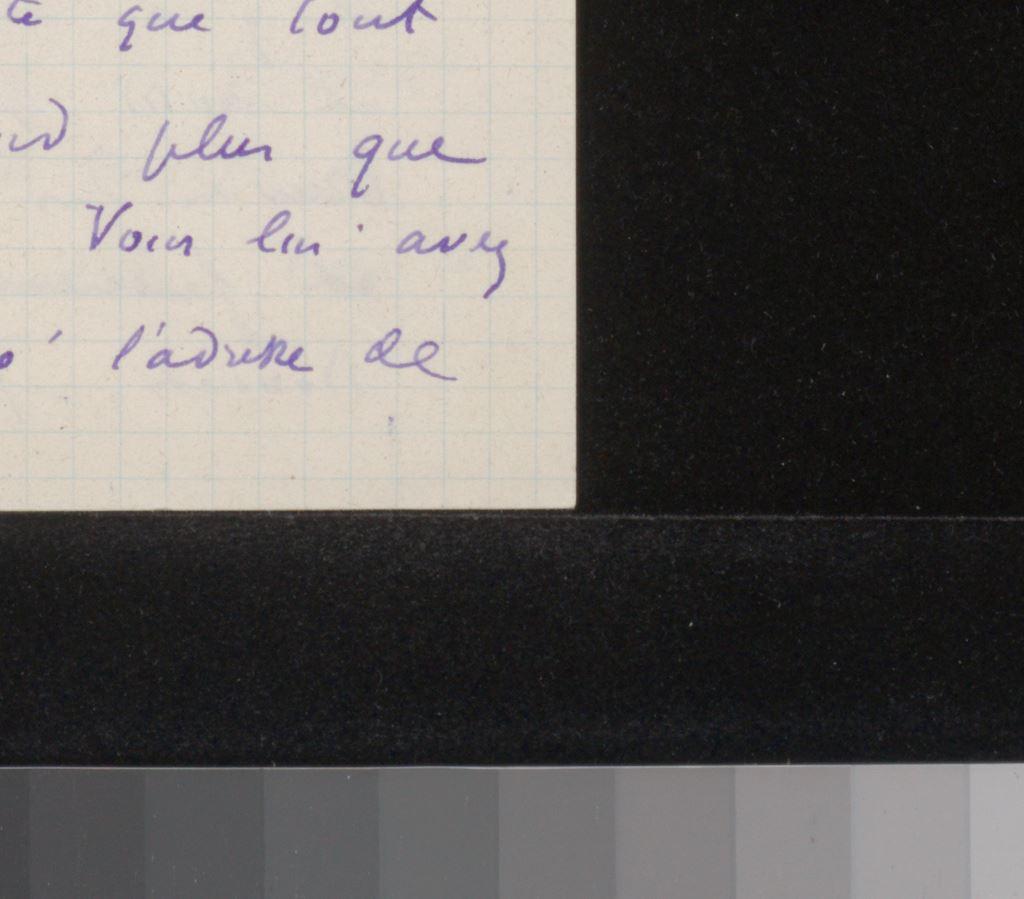 que tout
plus que
Vous lui avez
l'adresse de